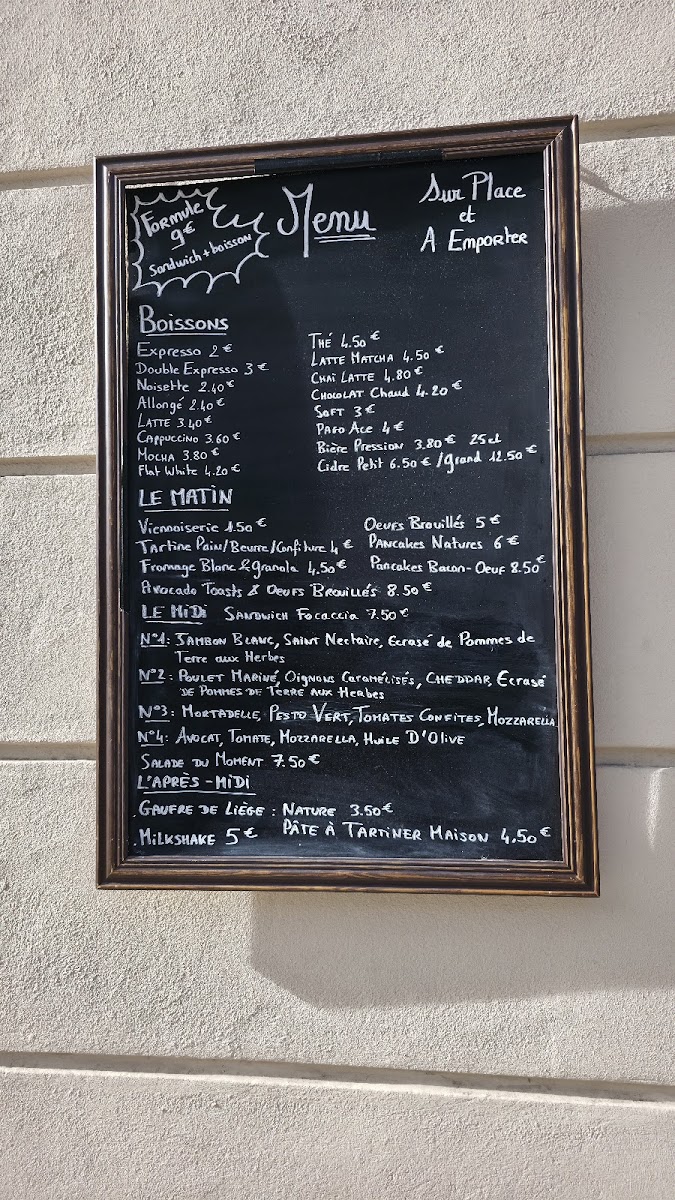 Formule
9€
Sandwich + boisson
Menu
Sur Place
et
A Emporter
Boissons
Expresso 2€
Double Expresso 3€
Noisette 2.40€
Allongé 2.40€
Latte 3.40€
Cappuccino 3.60€
Mocha 3.80€
Flat White 4.20€
Thé 4.50€
Latte Matcha 4.50€
Chaï Latte 4.80€
Chocolat Chaud 4.20€
Soft 3€
Pago Ace 4€
Bière Pression 3.80€ 25cl
Cidre Petit 6.50€/grand 12.50€
Le Matin
Viennoiserie 1.50€
Tartine Pain/Beurre/Confiture 4€
Fromage Blanc & granola 4.50€
Oeufs Brouillés 5€
Pancakes Natures 6€
Pancakes Bacon-Oeuf 8.50€
Avocado Toasts & Oeufs Brouillés 8.50€
Le Midi Sandwich Focaccia 7.50€
N°1: Jambon Blanc, Saint Nectaire, Ecrasé de Pommes de
Terre aux Herbes
N°2: Poulet Mariné, Oignons Caramélisés, Cheddar, Ecrasé
de Pommes de Terre aux Herbes
N°3: Mortadelle, Pesto Vert, Tomates Confites, Mozzarella
N°4: Avocat, Tomate, Mozzarella, Huile D'Olive
Salade du Moment 7.50€
L'Après-Midi
Gaufre de Liège : Nature 3.50€
Pâte à Tartiner Maison 4.50€
Milkshake 5€